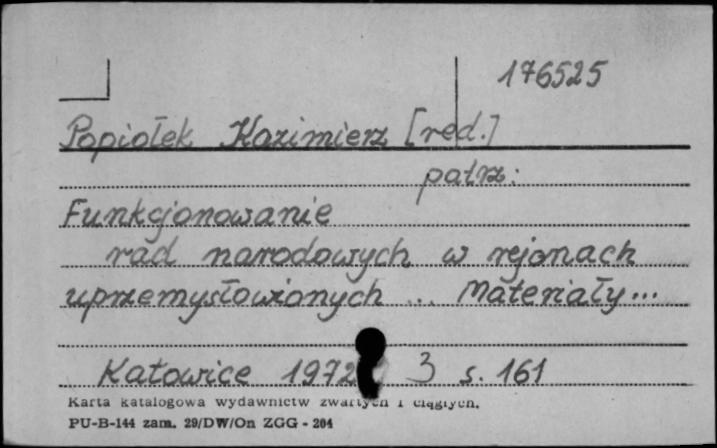 176525
Popiołek Kazimierz [red.]
patrz:
Funkcjonowanie
rad narodowych w rejonach
uprzemysłowionych ... Materiały...
Katowice 1972 3 s. 161
Karta katalogowa wydawnictw zwartych i ciągłych.
PU-B-144 zam. 29/DW/On ZGG - 204